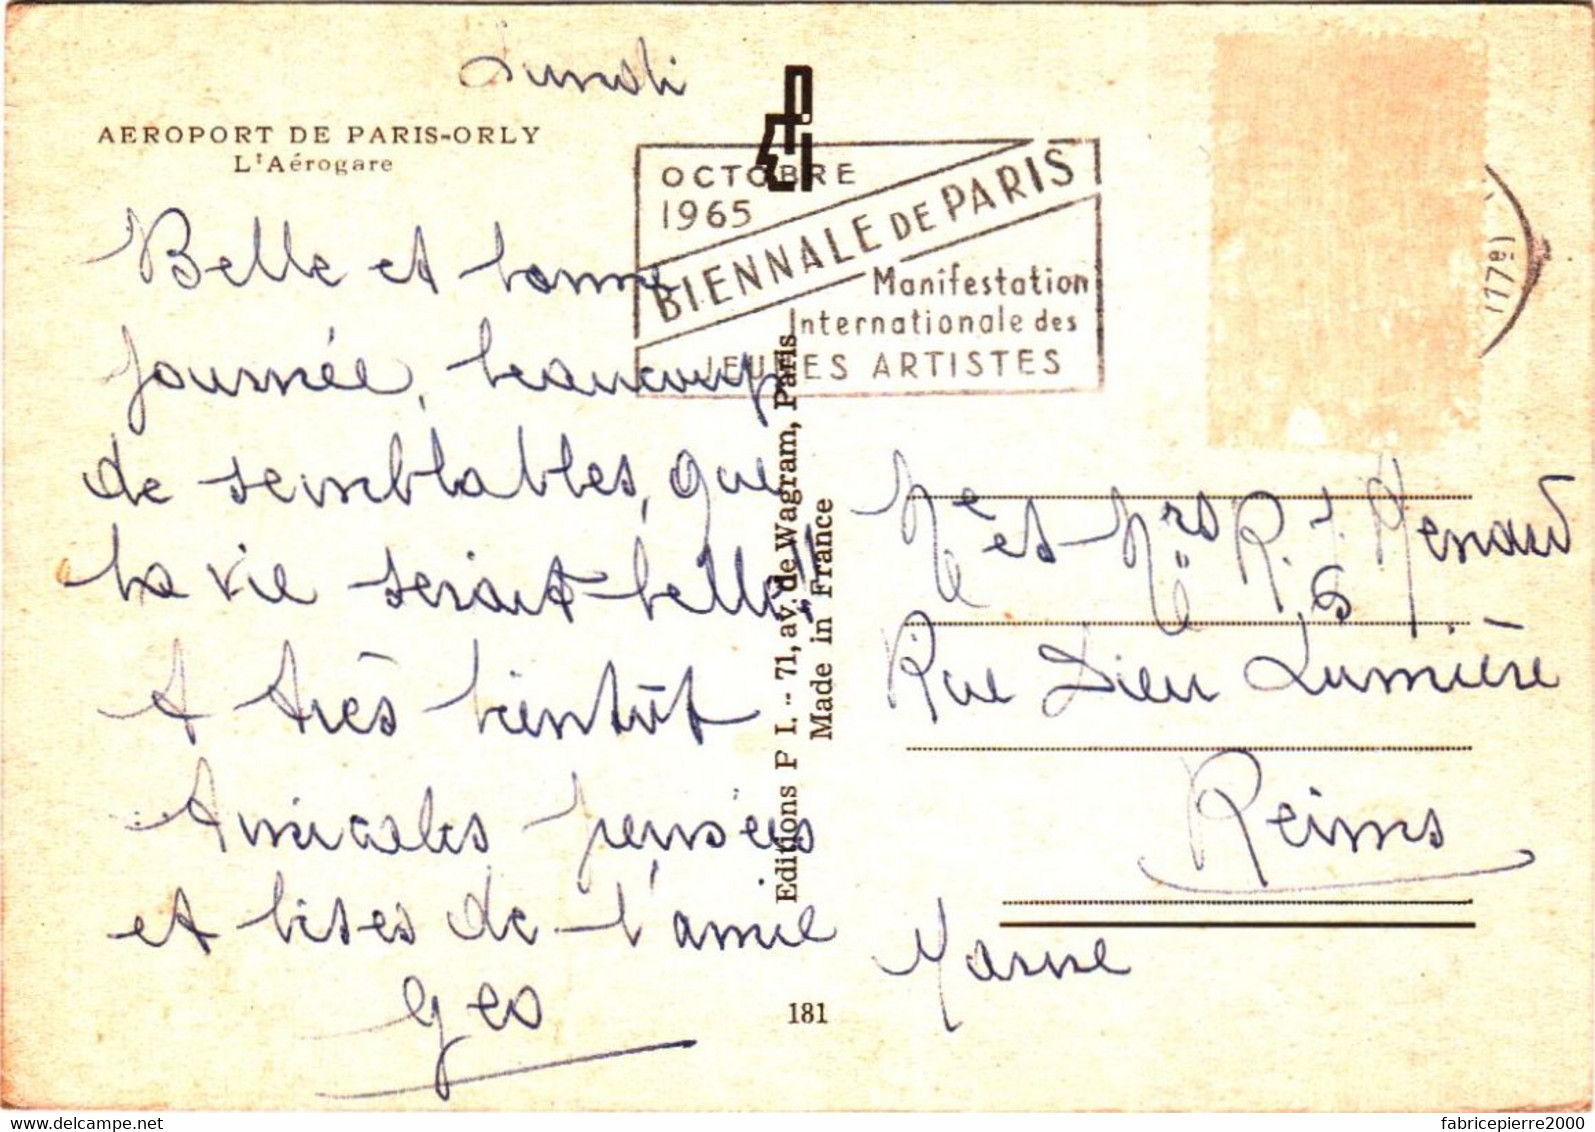 Lundi
AEROPORT DE PARIS-ORLY
L'Aérogare
Belle et bonne
journée, beaucoup
de semblables, que
la vie serait belle!!
A très bientôt
Amicales pensées
et bises de l'amie
Geo
OCTOBRE
1965
BIENNALE DE PARIS
Manifestation
Internationale des
JEUNES ARTISTES
17e
Editions P I. - 71, av. de Wagram, Paris
Made in France
181
Me et Mrs R. Renaud
6
Rue Dieu Lumière
Reims
Marne
www.delcampe.net
fabricepierre2000